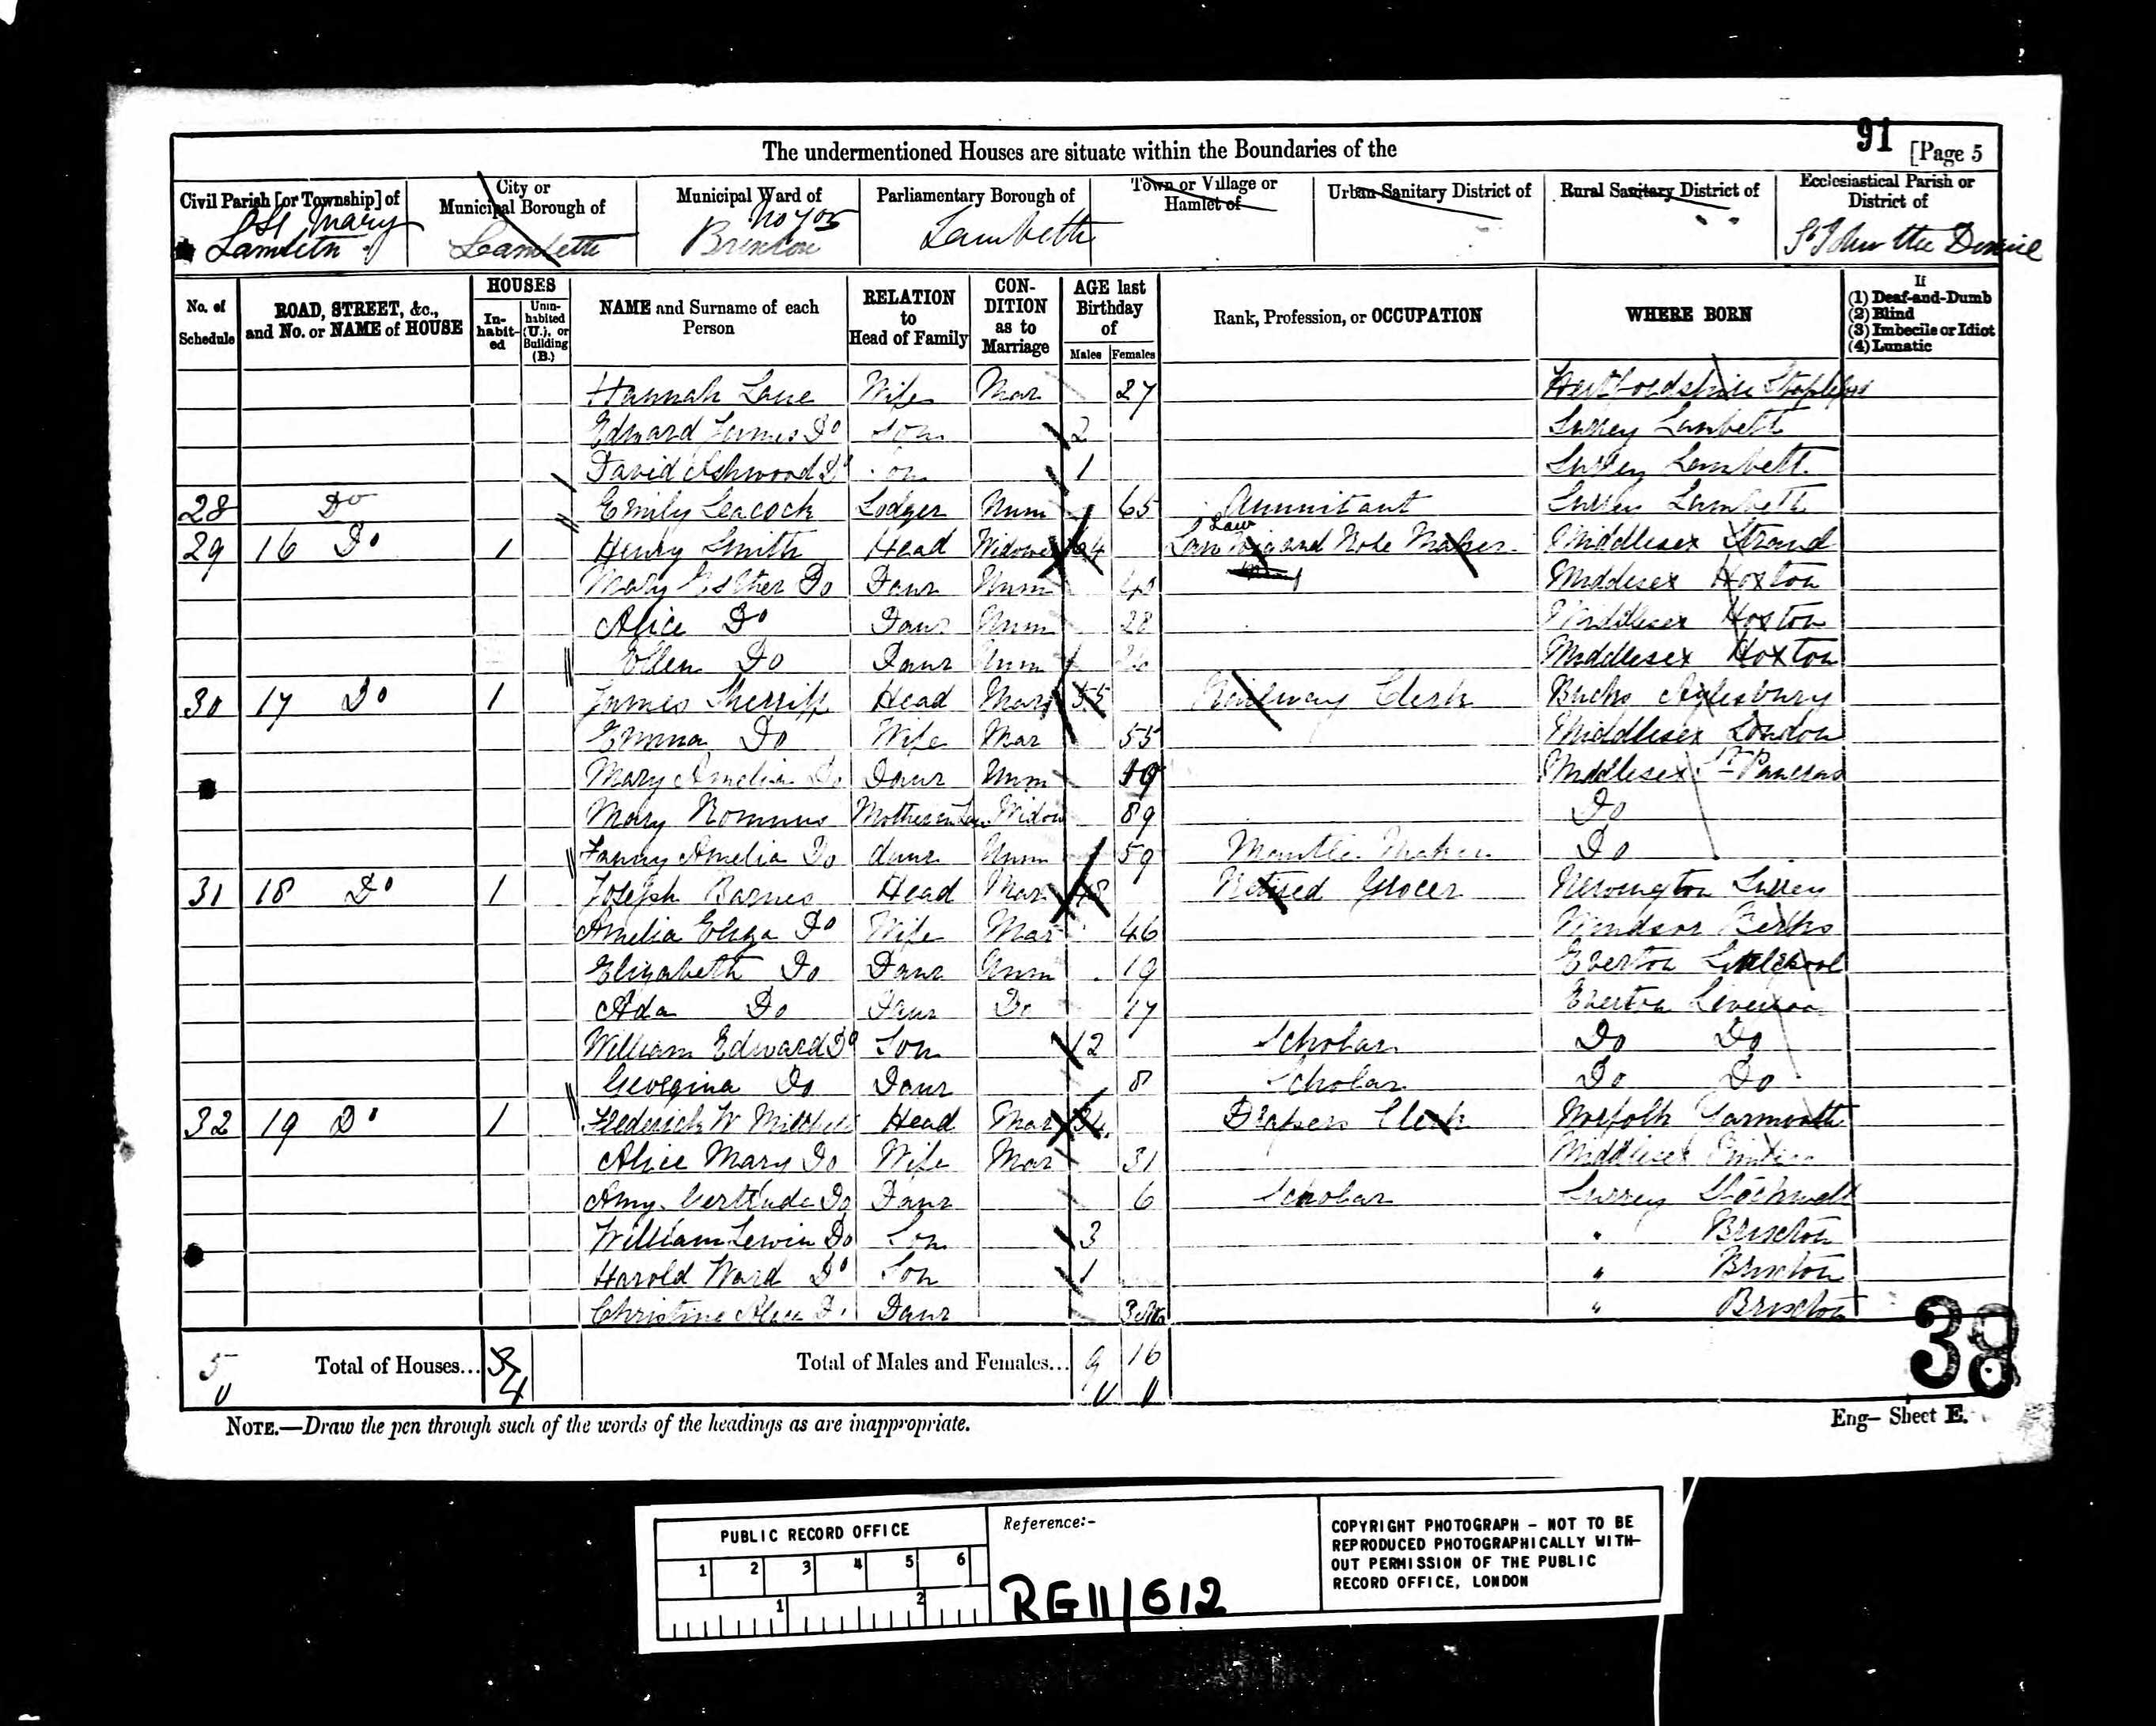 91 [Page 5
The undermentioned Houses are situate within the Boundaries of the
Civil Parish [or Township] of
St Mary
Lambeth
City or
Municipal Borough of
Lambeth
Municipal Ward of
No 4 or
Brixton
Parliamentary Borough of
Lambeth
Town or Village or
Hamlet of
Urban Sanitary District of
Rural Sanitary District of
Ecclesiastical Parish or
District of
St John the Divine
No. of
Schedule
ROAD, STREET, &c.,
and No. or NAME of HOUSE
HOUSES
In-
habit-
ed
Unin-
habited
(U.), or
Building
(B.)
NAME and Surname of each
Person
RELATION
to
Head of Family
CON-
DITION
as to
Marriage
AGE last
Birthday
of
Males Females
Rank, Profession, or OCCUPATION
WHERE BORN
If
(1) Deaf-and-Dumb
(2) Blind
(3) Imbecile or Idiot
(4) Lunatic
Hannah Lane Wife Mar 27 Hertfordshire Stapleford
Edward James Do Son 2 Surrey Lambeth
David Ashwood Do Son 1 Surrey Lambeth
28 Do Emily Leacock Lodger Unm 65 Annuitant Surrey Lambeth
29 16 Do 1 Henry Smith Head Widower 64 Law Wig and Robe Maker Middlesex Strand
Mary Esther Do Daur Unm 40 Middlesex Hoxton
Alice Do Daur Unm 28 Middlesex Hoxton
Ellen Do Daur Unm Middlesex Hoxton
30 17 Do 1 James Sherriff Head Mar 55 Railway Clerk Bucks Aylesbury
Emma Do Wife Mar 55 Middlesex London
Mary Amelia Do Daur Unm 19 Middlesex St Pancras
Mary Mother in Law Widow 89 Do
Fanny Amelia Do daur Unm 59 Mantle Maker Do
31 18 Do 1 Joseph Barnes Head Mar 48 Retired Grocer Newington Surrey
Amelia Eliza Do Wife Mar 46 Windsor Berks
Elizabeth Do Daur Unm 19 Everton Liverpool
Ada Do Daur Do 17 Everton Liverpool
William Edward Do Son 12 Scholar Do Do
Georgina Do Daur 8 Scholar Do Do
32 19 Do 1 Frederick W Mitchell Head Mar 34 Drapers Clerk Norfolk Yarmouth
Alice Mary Do Wife Mar 31 Middlesex Pimlico
Amy Gertrude Do Daur 6 Scholar Surrey Stockwell
William Lewin Do Son 3 " Brixton
Harold Ward Do Son 1 " Brixton
Christine Alice Do Daur " Brixton
5 Total of Houses... 4 Total of Males and Females... 9 16
38
NOTE.—Draw the pen through such of the words of the headings as are inappropriate.
Eng- Sheet E.
PUBLIC RECORD OFFICE
1 2 3 4 5 6
1 2
Reference:-
RG11/612
COPYRIGHT PHOTOGRAPH - NOT TO BE
REPRODUCED PHOTOGRAPHICALLY WITH-
OUT PERMISSION OF THE PUBLIC
RECORD OFFICE, LONDON